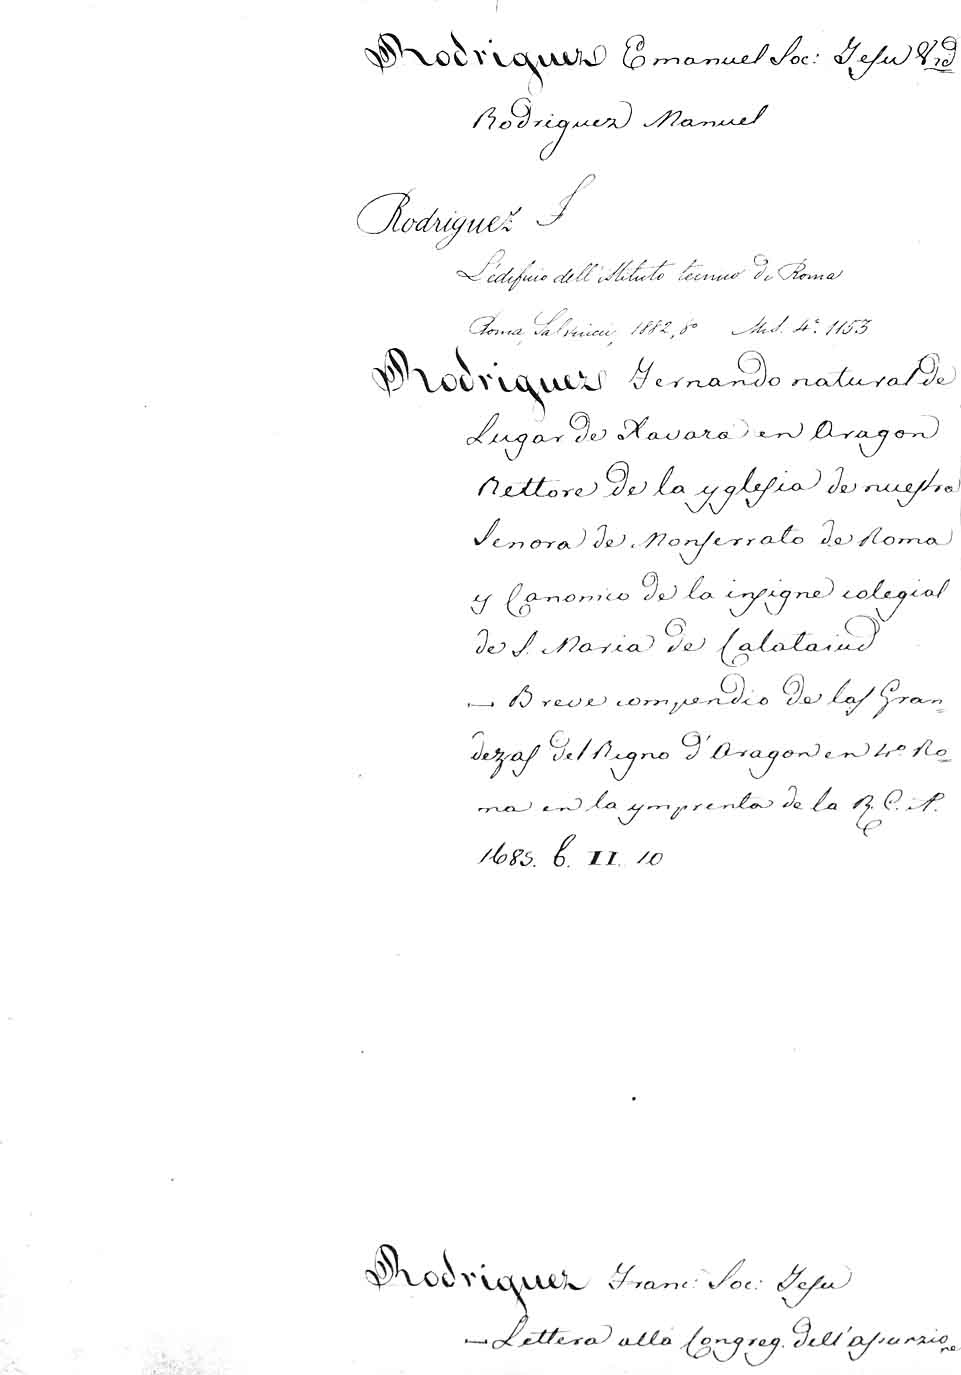 Rodriguez Emanuel Soc: Jesu Vid
Rodriguez Manuel
Rodriguez F
L'edificio dell'istituto tecnico di Roma
Roma, Salviucci, 1882, 8° Misc. 4°. 1153
Rodriguez Fernando natural de
Lugar de Navara en Aragon
Rettore de la yglesia de nuestra
Senora de Monserrato de Roma
y Canonico de la insigne colegial
de S. Maria de Calataiud
— Breve compendio de las Gran=
dezas del Regno d'Aragon en 4° Ro=
ma en la ymprenta de la R. C. A.
1685. b. II. 10
Rodriguez Franc: Soc: Jesu
— Lettera alla Congreg. dell'Assunzione